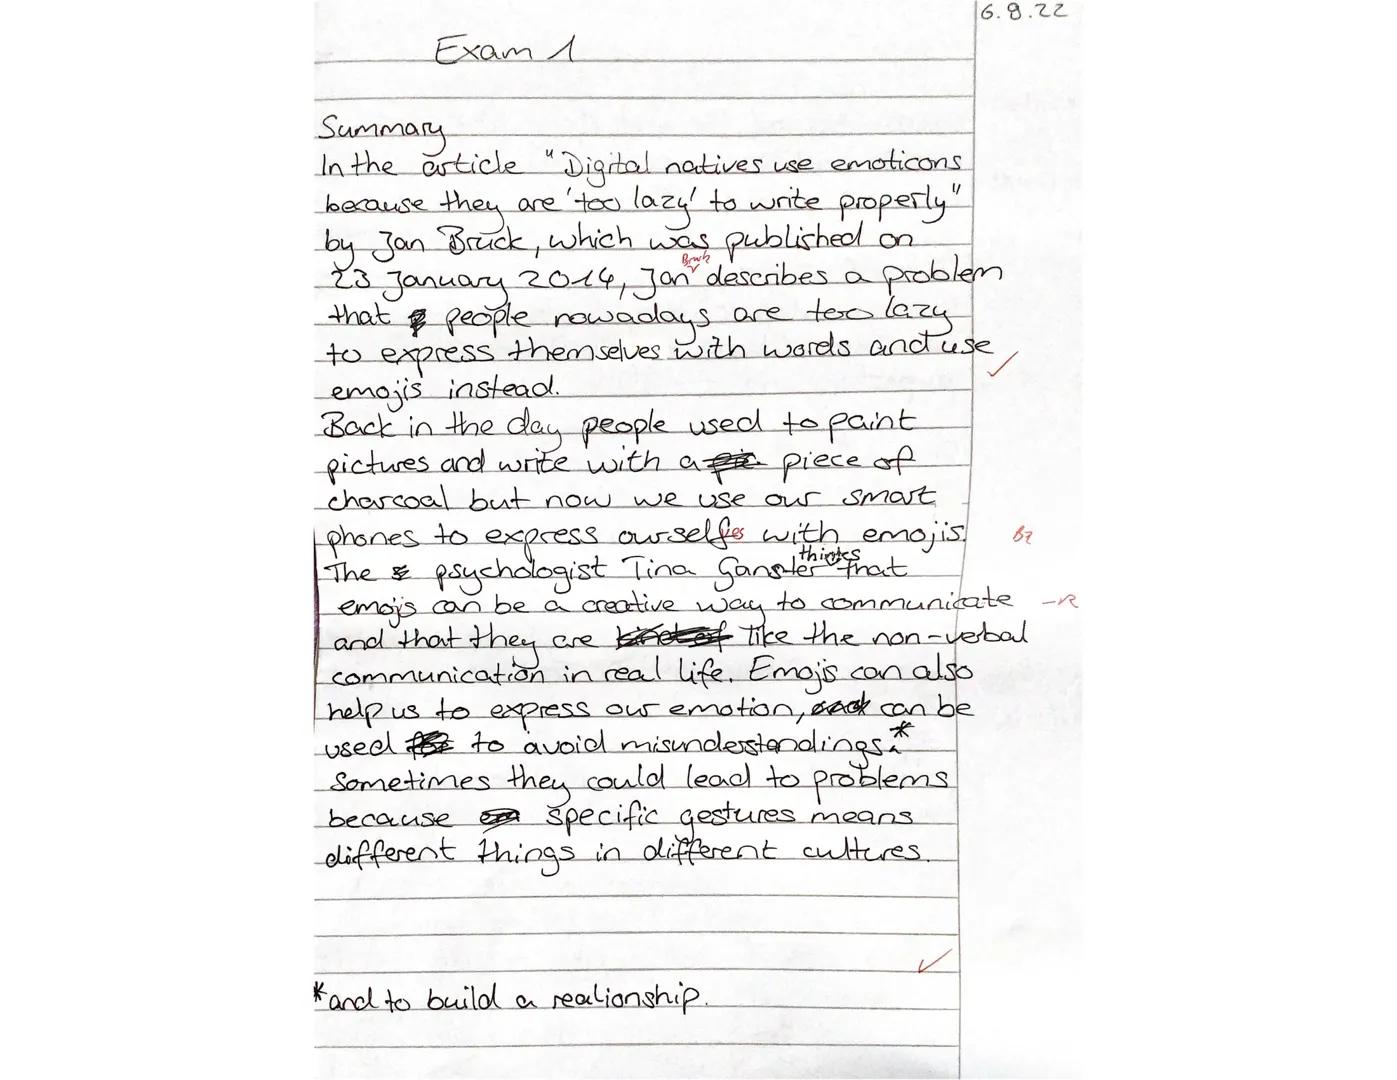 6.9.22
Exam 1
Summary
In the article "Digital natives use emoticons
because they are 'too lazy' to write properly"
by Jan Bruck, which was published on
Bruck
23 January 2014, Jan describes a problem
that people nowadays are too lazy
to express themselves with words and use
emojis instead.
Back in the day people used to paint
pictures and write with a piece of
charcoal but now we use our smart
phones to express ourselfves with emojis. Bz
thinkes
The psychologist Tina Ganster that
emojis can be a creative way to communicate -R
and that they are like the non-verbal
communication in real life. Emojis can also
help us to express our emotion, can be
used to avoid misunderstandings.*
Sometimes they could lead to problems
because specific gestures means
different things in different cultures.
*and to build a realionship.